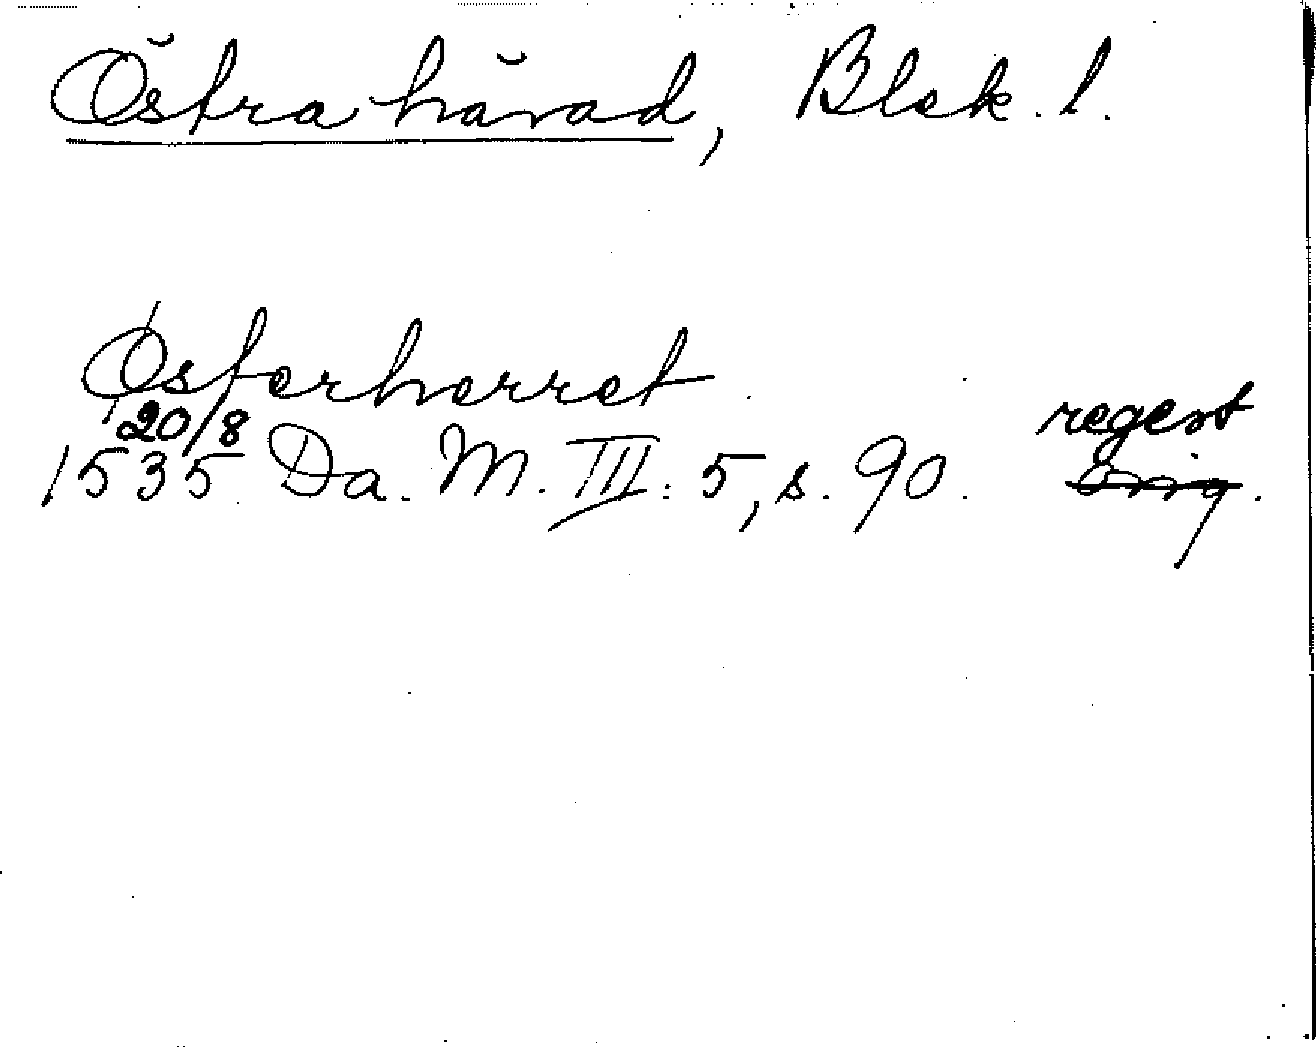 Östra härad, Blek. l.
Østerherret.
20/8 regest
1535 Da. M. III: 5, s. 90. orig.